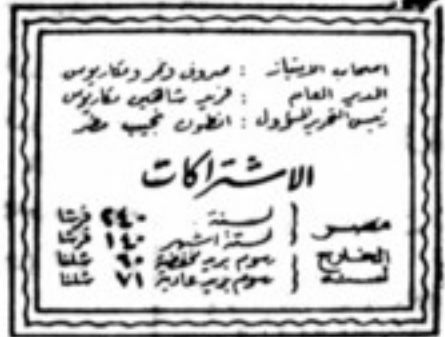 اصحاب الامتياز : صروف ونمر ومكاريوس
المدير العام : فريد شاهين مكاريوس
رئيس التحرير المسؤول : انطون نجيب مطر
الاشتراكات
مصر ( لسنة ٢٤٠ قرشا
لستة اشهر ١٤٠ قرشا
الخارج لسنة ( رسوم بريد مخفضة ٦٠ شلنا
رسوم بريد عادية ٧١ شلنا